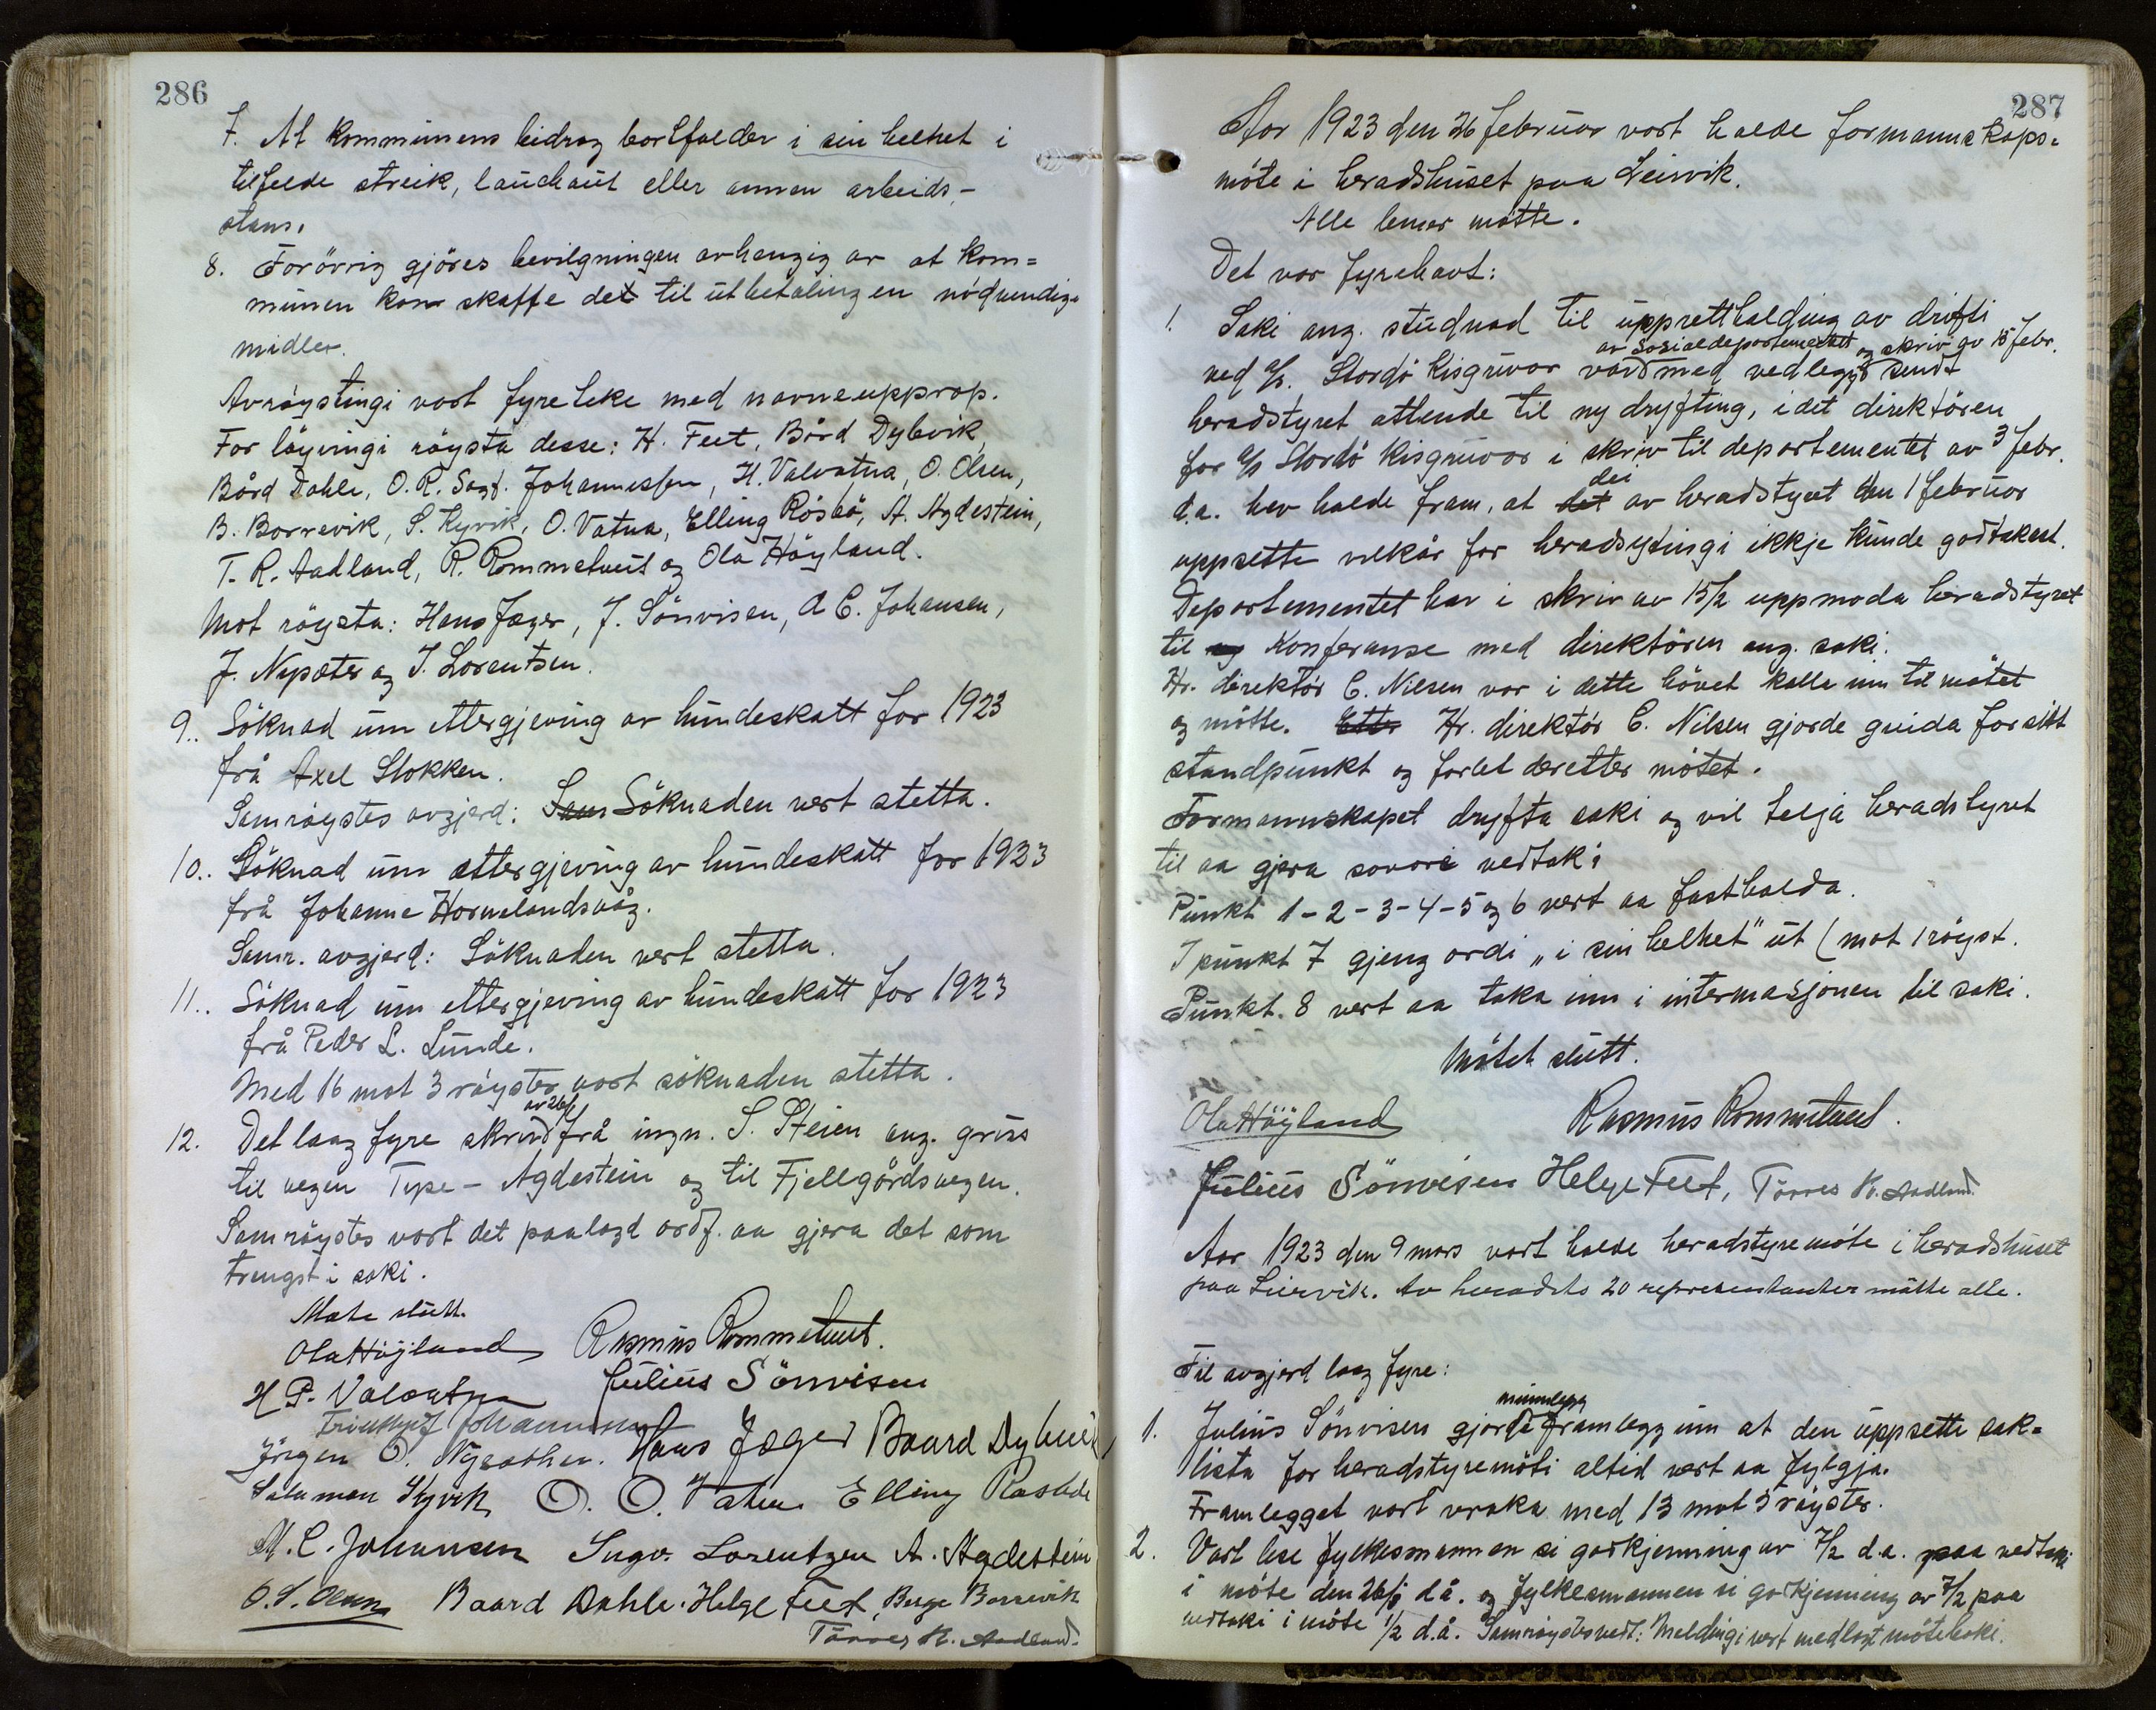 286
7. At kommunens bidrag bortfalder i sin helhet i
tilfelde streik, lauckaut eller annen arbeids-
stans.
8. Forövrig gjöres bevilgningen avhengig av at kom=
munen kan skaffe det til utbetalingen nödvendige
midler.
Avröystingi vart fyreteke med navneupprop.
For löyvingi röysta desse: H. Feet, Bård Dybvik,
Bård Dahle, O. R. Sagt. Johannessen, H. Valvatna, O. Olsen,
B. Borrevik, S. Hyvik, O. Vatna, Elling Rösbö, A. Agdestein,
T. R. Aadland, R. Rommetveit og Ola Höyland.
Mot röysta: Hans Jæger, J. Sönvisen, A C. Johansen,
J. Nysæter og I. Lorentsen.
9.. Söknad um ettergjeving av hundeskatt for 1923
frå Axel Stokken.
Samröystes avgjerd: Sam Söknaden vert stetta.
10.. Söknad um ettergjeving av hundeskatt for 1923
frå Johanne Hornelandsvåg.
Samr. avgjerd: Söknaden vert stetta.
11.. Söknad um ettergjeving av hundeskatt for 1923
frå Peder L. Lunde.
Med 16 mot 3 röyster vart söknaden stetta.
12. Det laag fyre skriv av 26/1 frå ingn. S. Steien ang. grus
til vegen Tyse - Agdestein og til Fjellgårdsvegen.
Samröystes vart det paalagd ordf. aa gjera det som
trengst i saki.
Möte slutt.
Ola Höyland Rasmus Rommetveit.
H P. Valvatna Julius Sönvisen
Johannessen
Jörgen O. Nysæther. Hans Jæger Baard Dybvik
Salamon Hyvik O. O. Vatna Elling Rösbö
A. C. Johansen Ingv. Lorentzen A. Agdestein
O. S. Olsen Baard Dahle. Helge Feet, Berge Borrevik
Törres R. Aadland.
287
Aar 1923 den 26 februar vart halde formannskaps=
möte i heradshuset paa Leirvik.
Alle lemer mötte.
Det var fyrehavt:
1. Saki ang. studnad til upprettholding av drifti
ved A/S. Stordö Kisgruvor vard av Sosialdepartementet med vedlegg og skriv av 15 febr. sendt
heradstyret attende til ny dryfting, i det direktören
for A/S Stordö Kisgruvor i skriv til departementet av 3 febr.
d.a. hev halde fram, at det dei av heradstyret den 1 februar
uppsette vilkår for heradsytingi ikkje kunde godtakast.
Departementet har i skriv av 15/2 uppmoda heradstyret
til ny Konferanse med direktören ang. saki.
Hr. direktör C. Nilsen var i dette hövet kalla inn til mötet
og mötte. Etter Hr. direktör C. Nilsen gjorde greida for sitt
standpunkt og forlet deretter mötet.
Formannskapet dryfta saki og vil telja heradstyret
til aa gjera sovore vedtak:
Punkt 1-2-3-4-5 og 6 vert aa fasthalda.
I punkt 7 gjeng ordi „i sin helhet" ut (mot 1 röyst.
Punkt. 8 vert aa taka inn i intermasjonen til saki.
Mötet slutt.
Ola Höyland Rasmus Rommetveit.
Julius Sönvisen Helge Feet, Törres R. Aadland.
Aar 1923 den 9 mars vart halde heradstyremöte i heradshuset
paa Leirvik. Av heradets 20 representanter mötte alle.
Til avgjerd laag fyre:
1. Julius Sönvisen gjorde munnlegg framlegg um at den uppsette sak=
lista for heradstyremöti altid vert aa fylgja.
Framlegget vart vraka med 13 mot 3 röyster.
2. Vart lese fylkesmannen si godkjenning av 7/2 d.a. paa vedtaki
i möte den 26/1 d.å. og fylkesmannen si godkjenning av 7/2 paa
vedtaki i möte 1/2 d.å. Samröystes vedt: Meldingi vert medlagt möteboki.